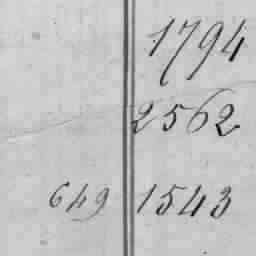 1794
2562
649 1543